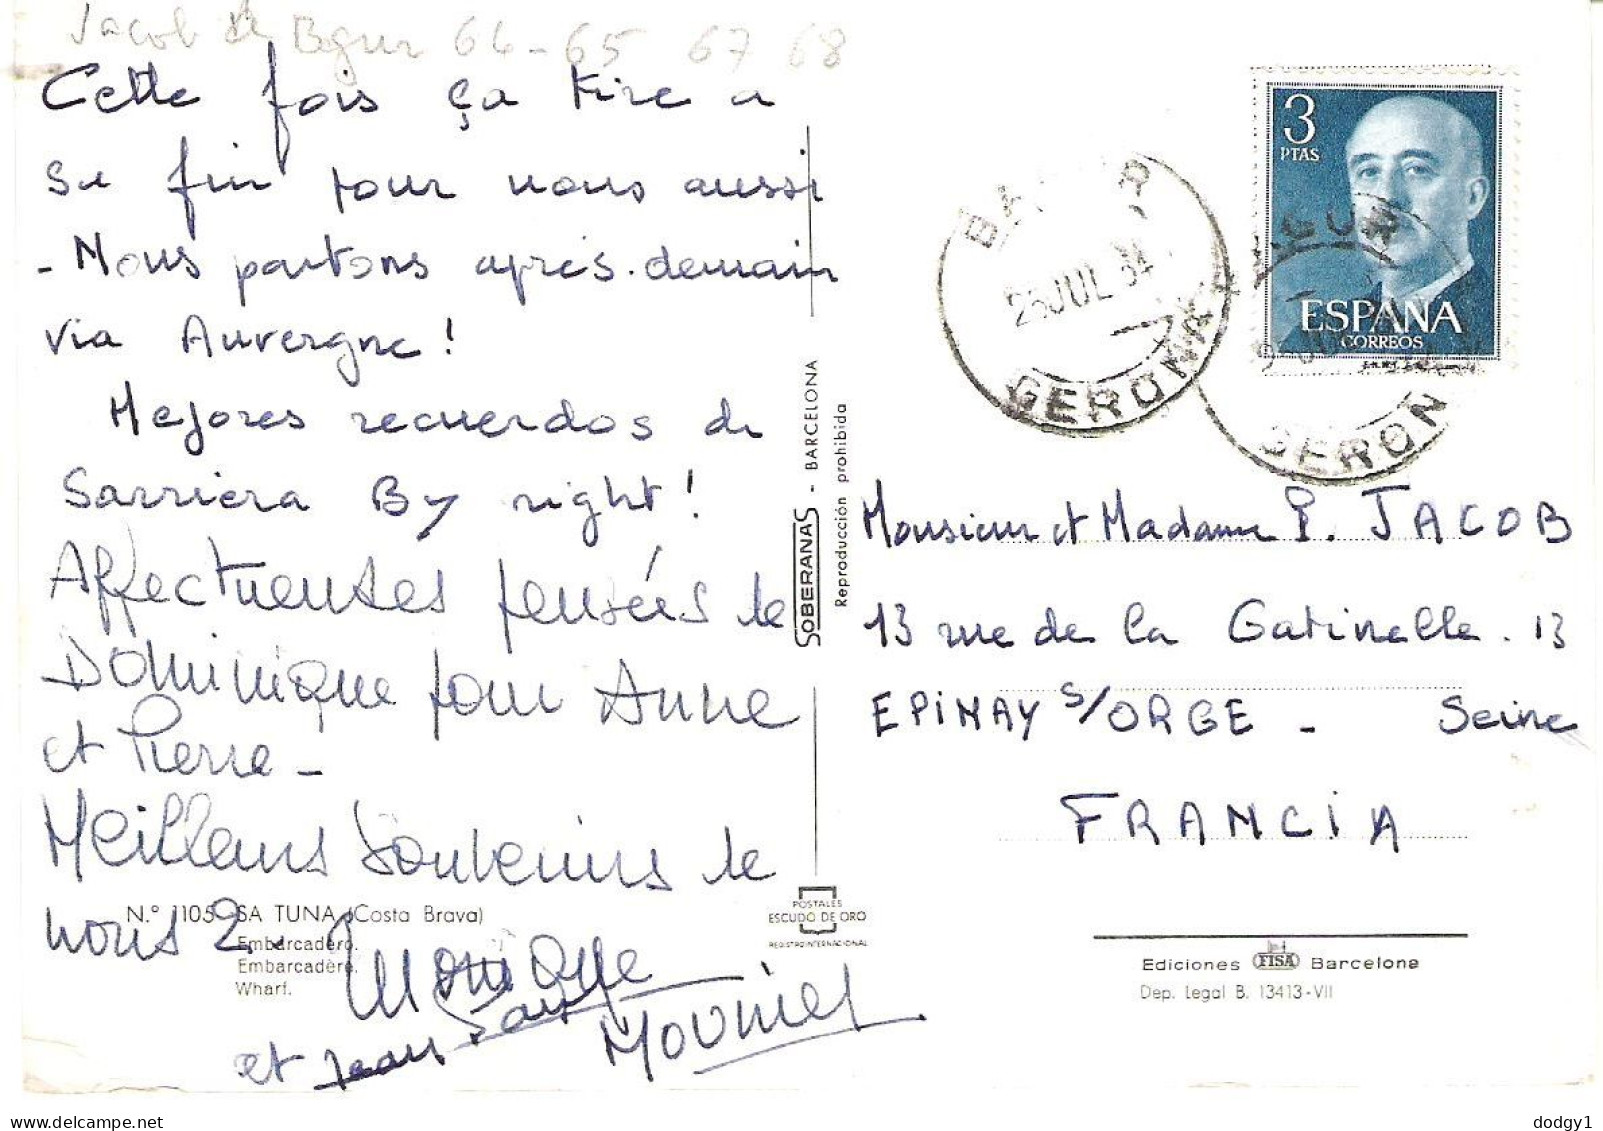 Jacob de Begur 64-65 67 68
Cette fois ça tire a
sa fin pour nous aussi
- Nous partons après-demain
via Auvergne !
Mejores recuerdos de
Sarriera By night !
Affectueuses pensées de
Dominique pour Anne
et Pierre -
Meilleurs Souvenirs de
nous 2.
Monique
et Jean
Mounier
N.° 1105 SA TUNA (Costa Brava)
Embarcadero.
Embarcadère.
Wharf.
SOBERANAS - BARCELONA
Reproducción prohibida
POSTALES
ESCUDO DE ORO
REGISTRO INTERNACIONAL
3
PTAS
ESPAÑA
CORREOS
25 JUL 64
GERONA
BAGUR
GERON
Monsieur et Madame P. JACOB
13 rue de la Gatinelle. 13
EPINAY S/ORGE - Seine
FRANCIA
Ediciones FISA Barcelona
Dep. Legal B. 13413-VII
dodgy1